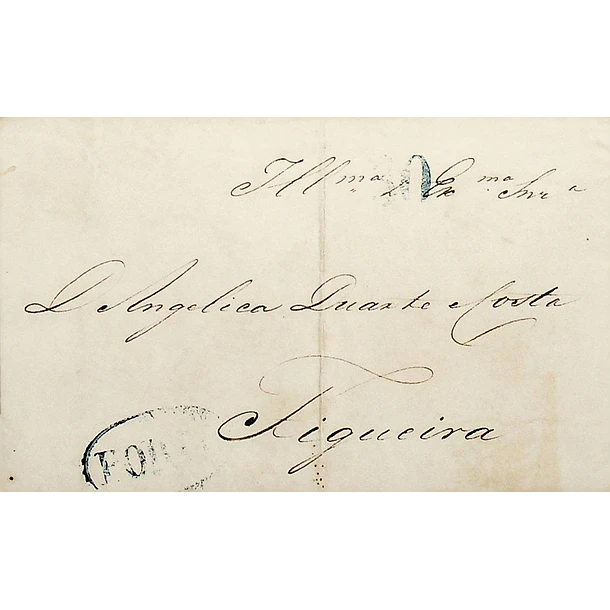 Ill.ma Ex.ma Snr.a
D Angelica Duarte Costa
Figueira